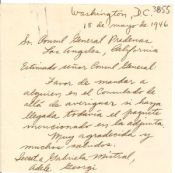 3855
Washington, D.C.
15 de mayo de 1946
Sr. Consul General
Los Angeles, California
Estimado señor Consul General
Favor de mandar a
alguien en el Consulado de
allá de averiguar si haya
llegado todavía el paquete
mencionado en la adjunta
Muy agradecida y
muchos saludos.
Gabriela Mistral,